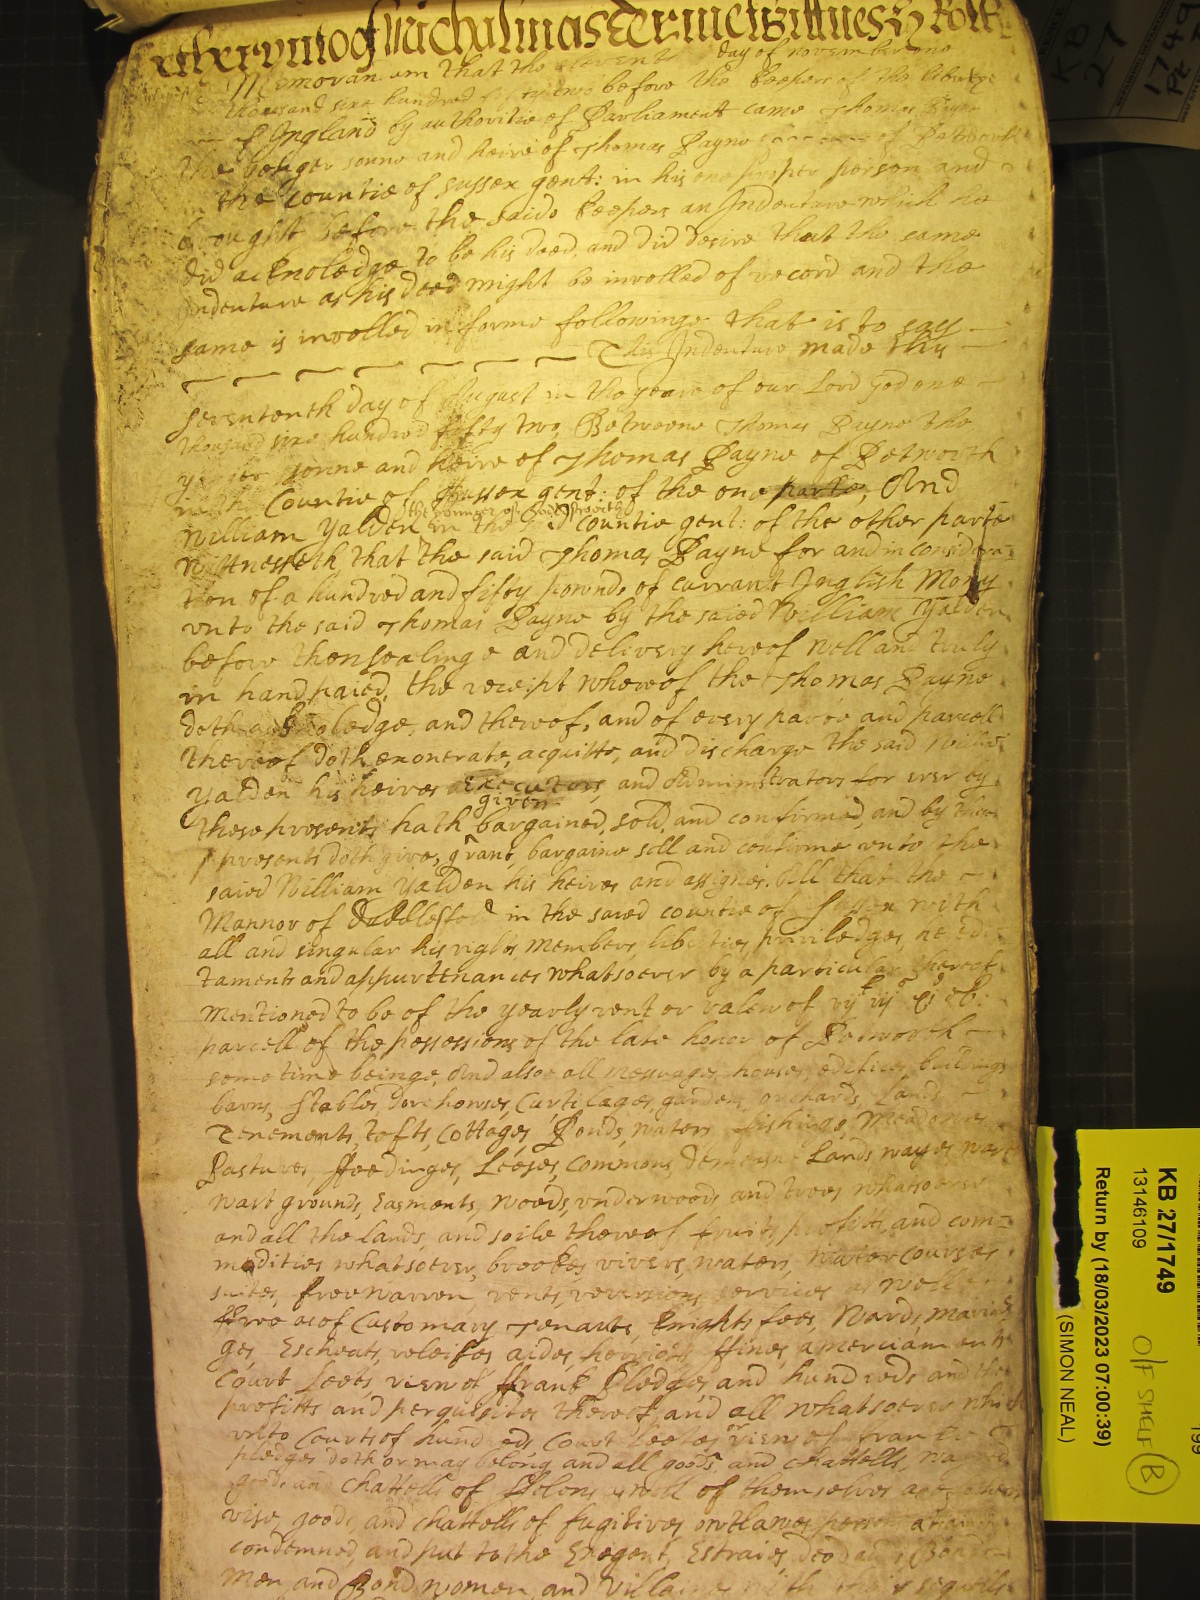 Michilmas Terme Wittnes Rolle
Memorandum that the eleventh day of november one
thousand sixe hundred fifty two before the keepers of the libertye
of Ingland by authoritie of Parliament came Thomas Payne
the yonger sonne and heire of Thomas Payne of Petworth
in the countie of sussex gent: in his one proper person and
brought before the saide keepers an Indenture which he
did acknoledge to be his deed, and did desire that the same
Indenture as his deed might be inrolled of record and the
same is inrolled in forme followinge that is to say
This Indenture made this
sevententh day of August in the yeare of our Lord god one
thousand sixe hundred fifty two, Betweene Thomas Payne the
yonger sonne and heire of Thomas Payne of Petworth
in the Countie of Sussex gent: of the one parte, And
the younger of
William Yalden in the said countie gent: of the other parte
Wittnesseth, that the said Thomas Payne for and in considera-
tion of a hundred and fifty pownds of currant Inglish Mony
unto the said Thomas Payne by the saied William Yalden
before then sealinge and delivery hereof well and truly
in hand paied, the receipt whereof the Thomas Payne
doth acknoledge, and thereof, and of every parte and parcell
thereof doth exonerate, acquitte, and discharge the said William
Yalden his heires executors, and administrators for ever by
given
these presents hath bargained, sold, and confirmed, and by these
presents doth give, grant, bargaine sell and confirme unto the
saied William Yalden his heires and assignes. All that the
Mannor of Dedelsfold in the saied countie of Sussex with
all and singular his rights members, liberties, priviledges, heredi
taments and appurtenances whatsoever by a particular thereof
mentioned to be of the yearly rent or valew of
parcell of the possessions of the late honor of Petworth
sometime beinge, And alsoe all messuages, houses, edifices, buildings
barns, stables, dove houses, Curtilages, gardens, orchards, Lands
Tenements, tofts, Cottages, Ponds, waters fishings, Meadowes
Pastures, ffeedinges, Leeses, Commons, demesne Lands wayes wast
wast grounds, Easments, woods, underwoods and trees whatsoever
and all the lands, and soile thereof fruits, profitts, and com=
modities whatsoever, brookes, rivers, waters, water courses
suites, free warren rents, reversions services as well
free as of Customary Tenants, Knights fees, Wards, maria
ges, Escheats, releifes aides, herriots, ffines, amerciaments
Court leets, view of ffrank Pledges, and hundreds and the
profitts and perquisites thereof, and all whatsoever which
unto Courts of hundreds, Court leetes or view of Frank
pledges doth or may belong, and all goods and chattells, wayved
goods, and chattells of felons as well of themselves as
wise, goods, and chattells of fugitives, outlawes persons
condemned, and put to the Exegent, Estraies, deodands, Bond
Men, and Bond women, and Villains with their sequells
KB
27
1749
KB 27/1749
13146109
Return by (18/03/2023 07:00:39)
(SIMON NEAL)
O/F SHELF B